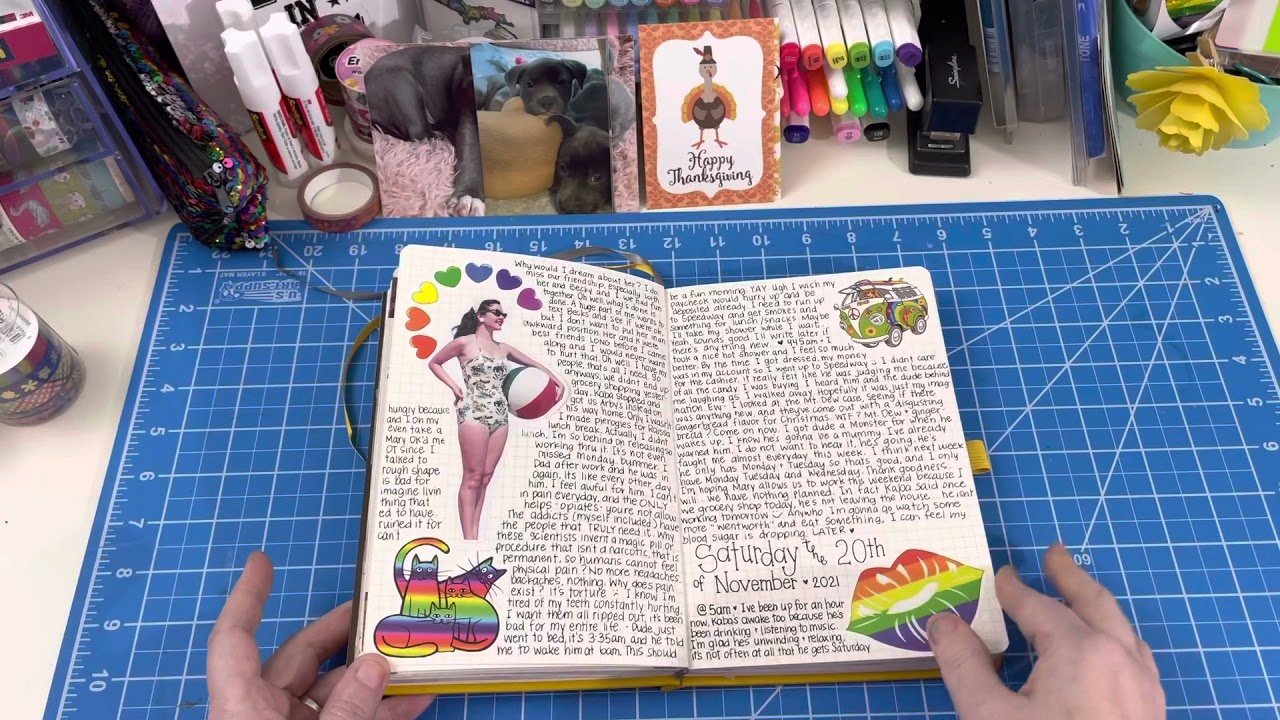 3M
IN
Er
Happy
Thanksgiving
Swingline
TONE
22 21 20 19 17 16 15 14 13 12 11 10 9 8 7 6 5 4 3 2
1
2
3
4
5
6
7
8
9
10
60
5 LAYER MAT
US
ARTSUPPLY
Why would I dream about her? I do
miss our friendship, especially with
her and Becky and I. We had fun
together. Oh well, what's done is
done. A part of me wants to
text Becks and see if we're ok
but I don't want to put her in an
awkward position. Her and K were
best friends LONG before I came
along and I would never want
to hurt that. Oh well. I have my
people, that's all I need. So
anyways, we didn't end up
grocery shopping yester-
day. Kaba stopped and
got us Arby's instead on
his way home. Only issue is
I made pierogies for
lunch break. Actually I didn't
lunch. I'm so behind on releasing so
working thru it. It's not even
missed Monday, bummer. I
Dad after work and he was in
again. It's like every other day
him. I feel awful for him. I can't
in pain everyday, and the ONLY
helps: opiates: you're not allow
The addicts (myself included) have
the people that TRULY need it. Why
these scientists invent a magic pill or
procedure that isn't a narcotic, that is
permanent, so humans cannot feel
physical pain? No more headaches,
backaches, nothing. Why does pain
exist? It's torture. I know I'm
tired of my teeth constantly hurting.
I want them all ripped out, it's been
bad for my entire life. • Dude, just
went to bed, it's 3:35am and he told
me to wake him at 6am. This should
hungry because
and I on my
even take a
Mary OK'd me
OT since I
talked to
rough shape
is bad for
imagine livin
thing that
ed to have
ruined it for
can't
be a fun morning. YAY Ugh I wish my
paycheck would hurry up and be
deposited already. I need to run up
to Speedway and get smokes and
something for lunch/snacks. Maybe
I'll take my shower while I wait.
Yeah, sounds good. I'll write later if
there's anything new. ♥ 4:45am • I
took a nice hot shower and I feel so much
better. By the time I got dressed my money
was in my account so I went up to Speedway. I didn't care
for the cashier, it really felt like he was judging me because
of all the candy I was buying. I heard him and the dude behind
me laughing as I walked away. Hopefully it was just my imag-
ination. Ew. I looked at the Mt. Dew case, seeing if there
was anything new and they've come out with a disgusting
gingerbread flavor for Christmas. WTF? Mt. Dew + ginger-
bread? Come on now. I got dude a Monster for when he
wakes up, I know he's gonna be a mummy. I've already
warned him, I do not want to hear it, he's going. He's
taught me almost everyday this week. I think next week
he only has Monday + Tuesday so that's good, and I only
have Monday Tuesday and Wednesday. Thank goodness.
I'm hoping Mary allows us to work this weekend because I
will, we have nothing planned. In fact Kaba said once
we grocery shop today, he's not leaving the house... he isn't
working tomorrow. Anywho I'm gonna go watch some
more "wentworth" and eat something, I can feel my
blood sugar is dropping. LATER ♥
Saturday the 20th
of November • 2021
@ 5am • I've been up for an hour
now, Kaba's awake too because he's
been drinking + listening to music.
I'm glad he's unwinding + relaxing,
it's not often at all that he gets Saturday